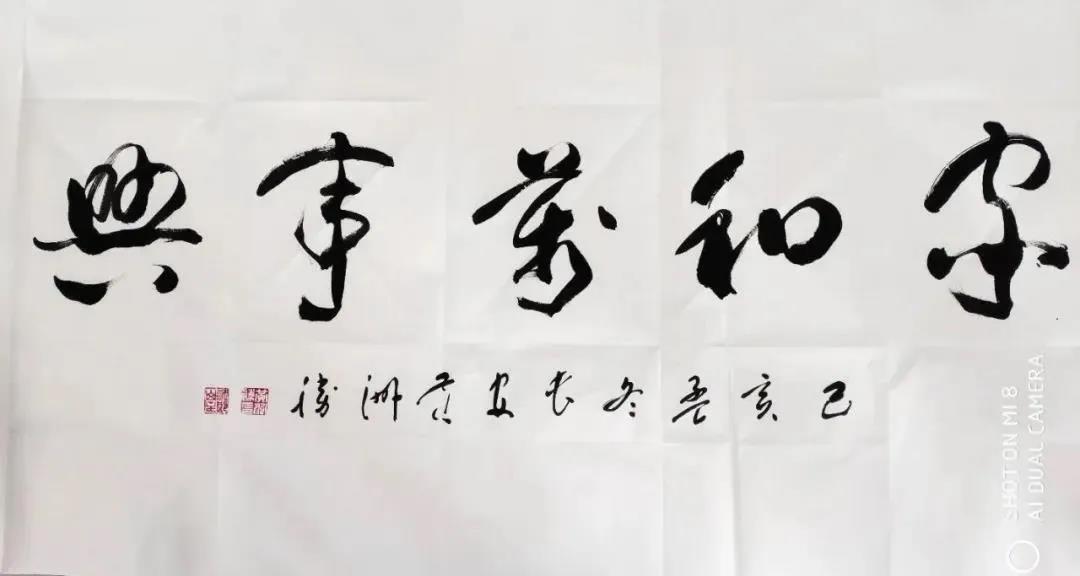 家和萬事興
己亥孟冬长安黄洲勝
SHOT ON MI 8
AI DUAL CAMERA